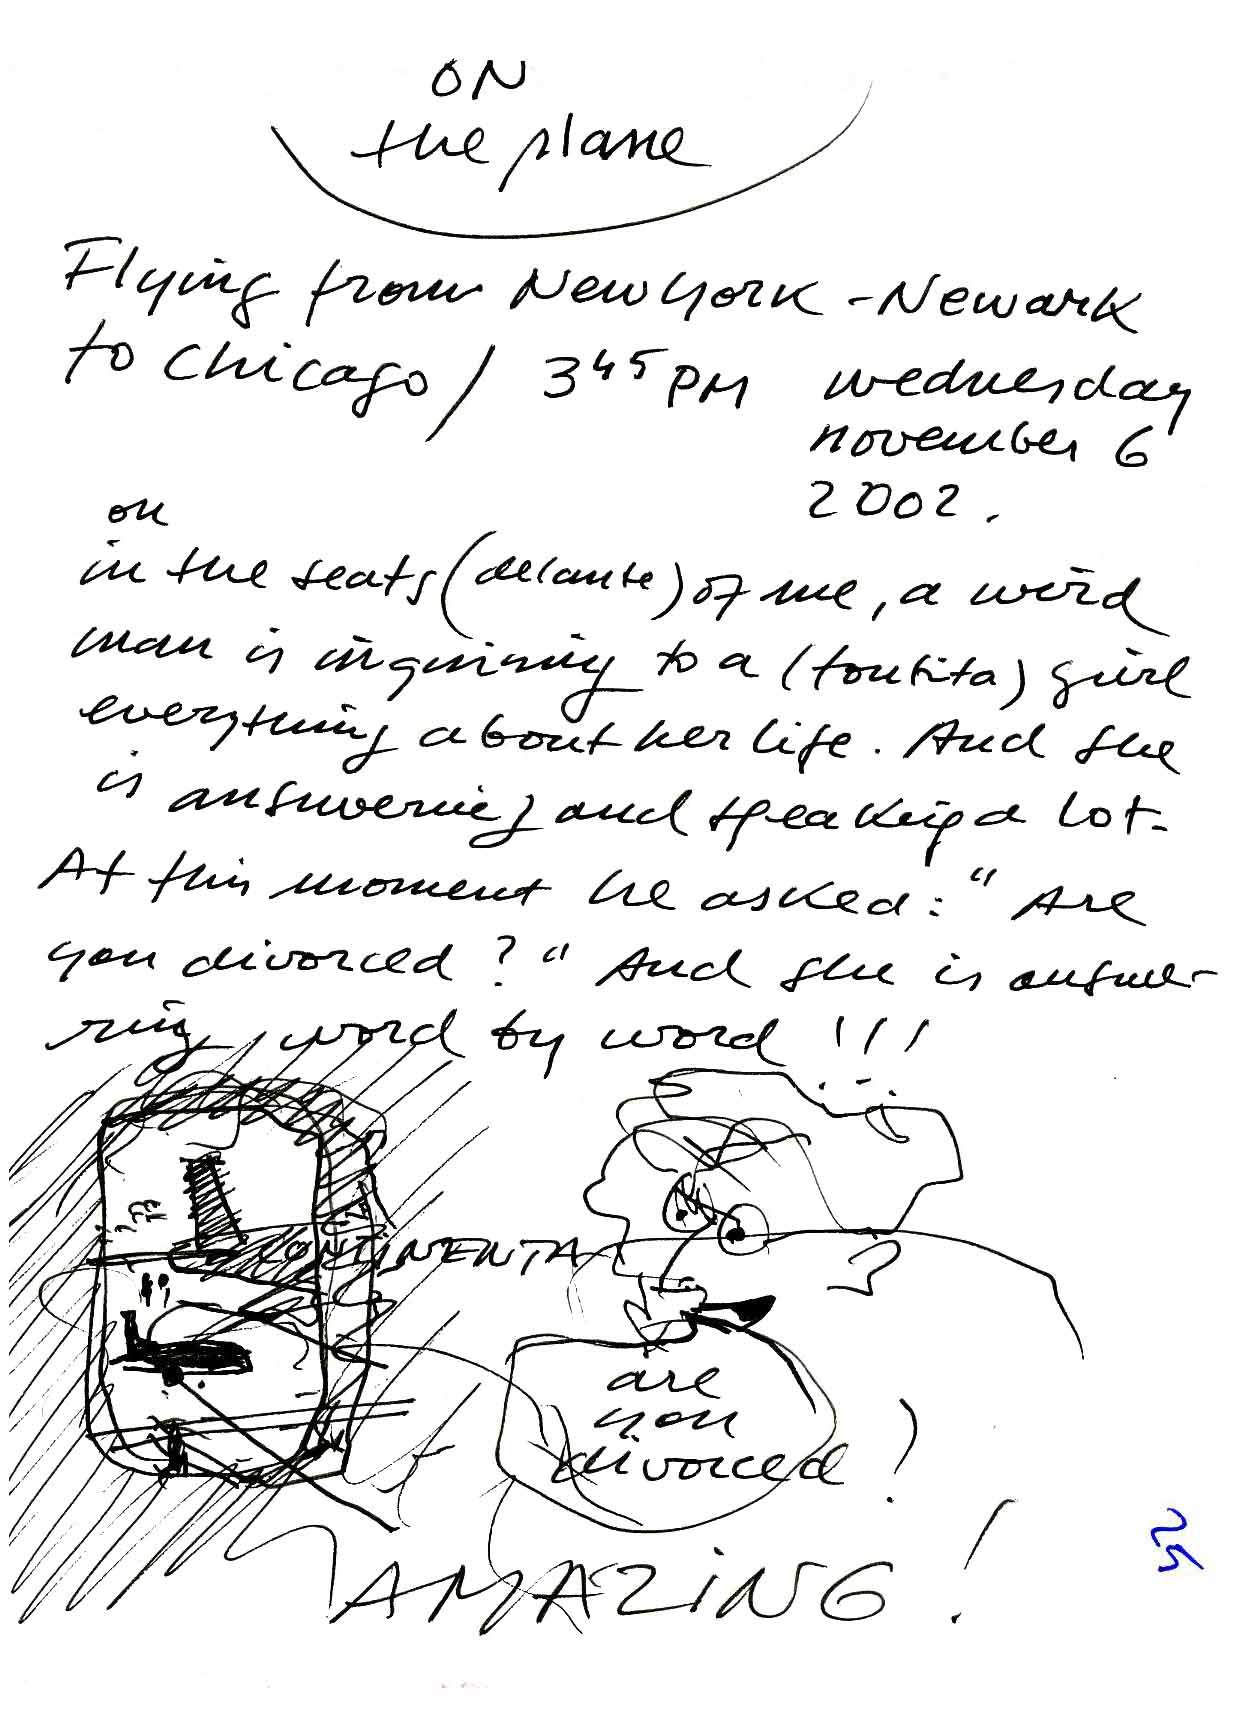 ON
the plane
Flying from New York - Newark
to Chicago / 3 45 PM wednesday
november 6
2002.
on
in the seats (delante) of me, a weird
man is inquiring to a (tontita) girl
everything about her life. And she
is answering and speaking a lot.
At this moment he asked: "Are
you divorced?" And she is answe-
ring, word by word !!!
CONTINENTA
are
you
divorced?
AMAZING!
25